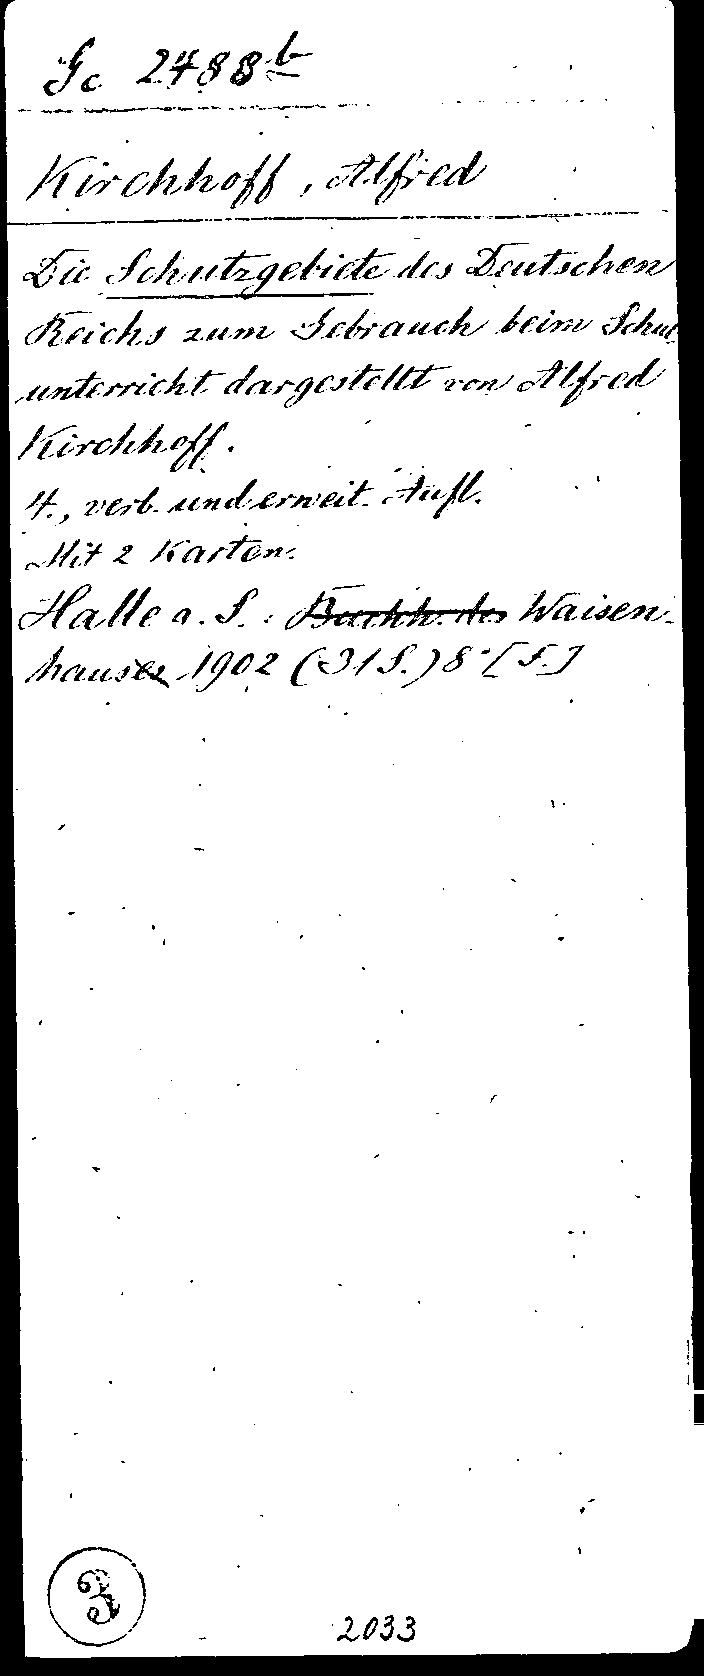 Gc 2488b
Kirchhoff, Alfred
Die Schutzgebiete des Deutschen
Reichs zum Gebrauch beim Schul
unterricht dargestellt von Alfred
Kirchhoff.
4., verb. und erweit. Aufl.
Mit 2 Karten.
Halle a. S.: Buchh. des Waisen-
hauses 1902 (31 S.) 8° [S.]
3
2033